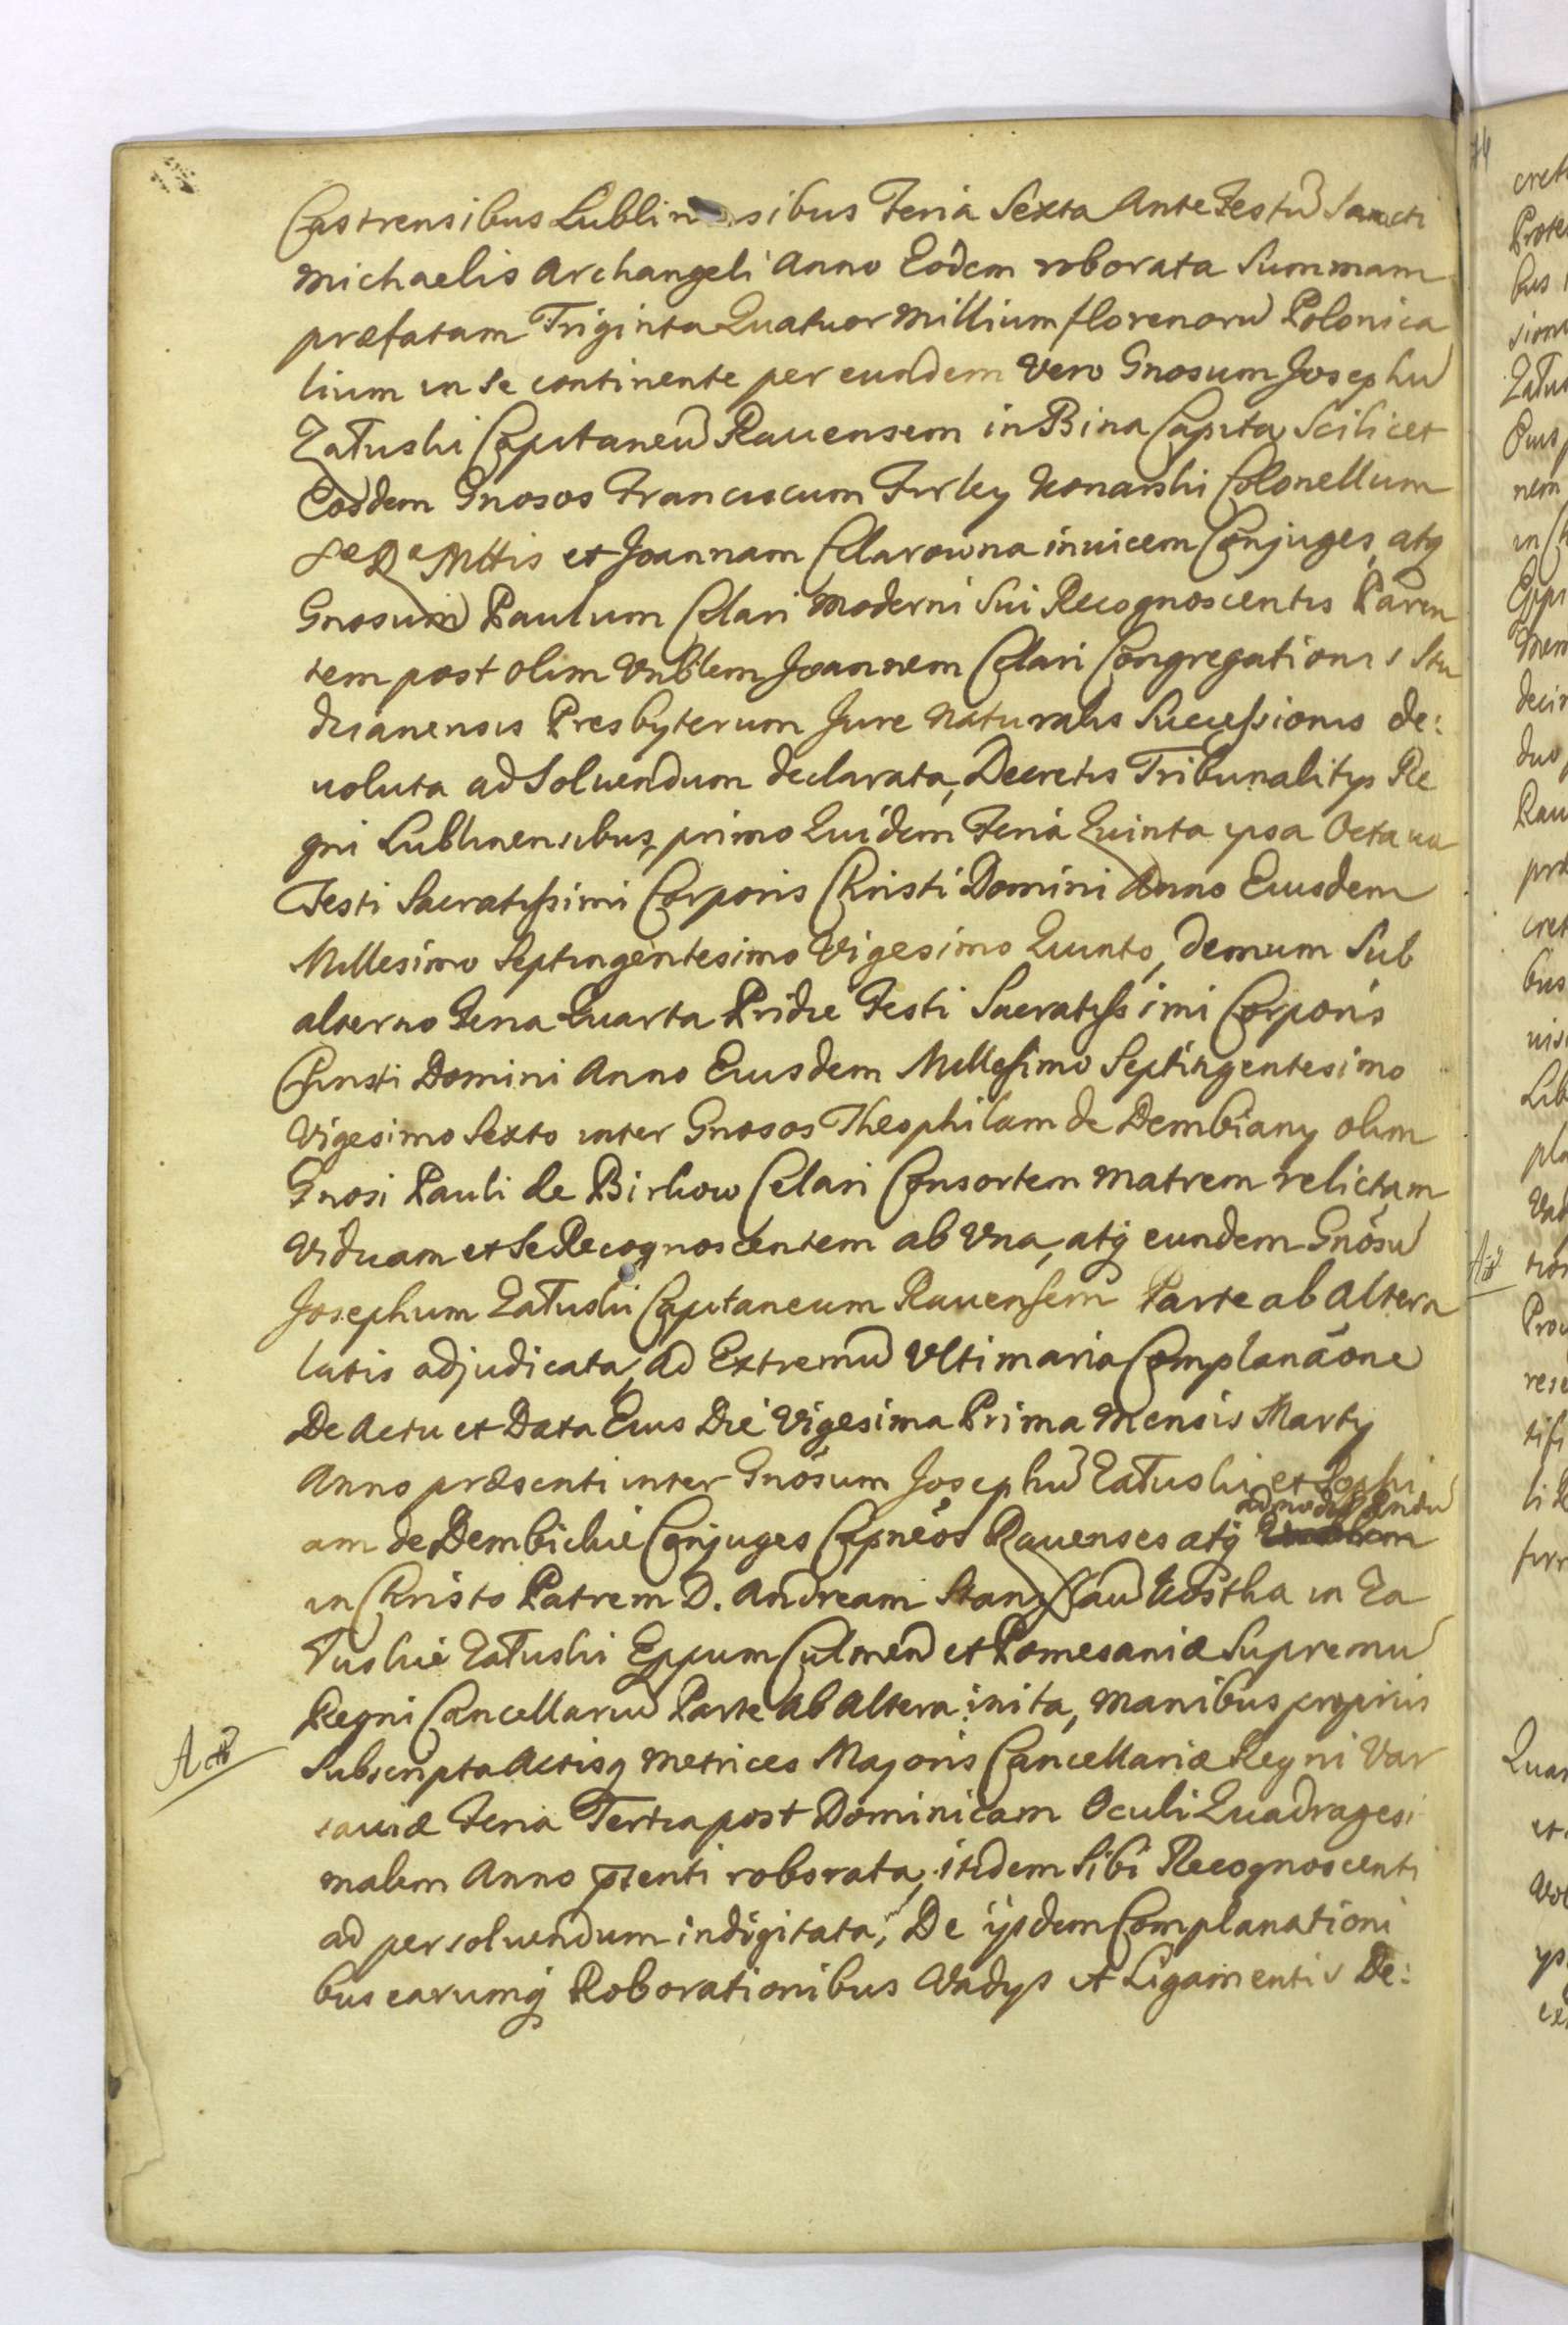 Castrensibus Lublinensibus Feria Sexta Ante Festũ Sancti
Michaelis Archangeli Anno Eodem roborata Summam
præfatam Triginta Quatuor Millium florenorũ Polonica
lium in Se continente per eundem Vero Gnosum Josephũ
Załuski Capitaneũ Rauensem in Bina Capita Scilicet
Eosdem Gnosos Franciscum Firley Konarski Colonellum
S R Mttis et Joannam Celarowna inuicem Conjuges, atq
Gnosum Paulum Celari Moderni Sui Recognoscentis Paren
tem post olim Vnblem Joannem Celari Congregationis Stu
dzianensis Presbyterum Jure Naturalis Successionis de:
uoluta ad Soluendum declarata, Decretis Tribunalitijs Re
gni Lublinensibus, primo Quidem Feria Quinta ipsa Octaua
Festi Sacratissimi Corporis Christi Domini Anno Eiusdem
Millesimo Septingentesimo Vigesimo Quinto, demum Sub
alterno Feria Quarta Pridie Festi Sacratissimi Corporis
Christi Domini Anno Eiusdem Millesimo Septingentesimo
Vigesimo Sexto inter Gnosos Theophilam de Dembiany olim
Gnosi Pauli de Birkow Celari Consortem Matrem relictam
Viduam et Se Recognoscentem ab Vna, atq eundem Gnõsũ
Josephum Załuski Capitaneum Rauensem Parte ab Altera
latis adjudicata, Ad Extremũ Vltimaria Complanãone
De Actu et Data Eius Die Vigesima Prima Mensis Martij
Anno præsenti inter Gnõsum Josephũ Załuski et Sophi
am de Dembickie Conjuges Capnẽos Rauenses atq admodũ Rndũ
in Christo Patrem D. Andream Stanislaũ Kostka in Za
łuskie Załuski Eppum Culmeñ et Pomesaniæ Supremũ
Regni Cancellariũ Parte Ab Altera inita, Manibus proprijs
Subscripta Actisq Metrices Majoris Cancellariæ Regni Var
sauiæ Feria Tertia post Dominicam Oculi Quadragesi
malem Anno pzenti roborata, itidem Sibi Recognoscenti
ad persoluendum indigitata, De ijsdem Complanationi
bus earumq Roborationibus Vadijs et Ligamentis De: